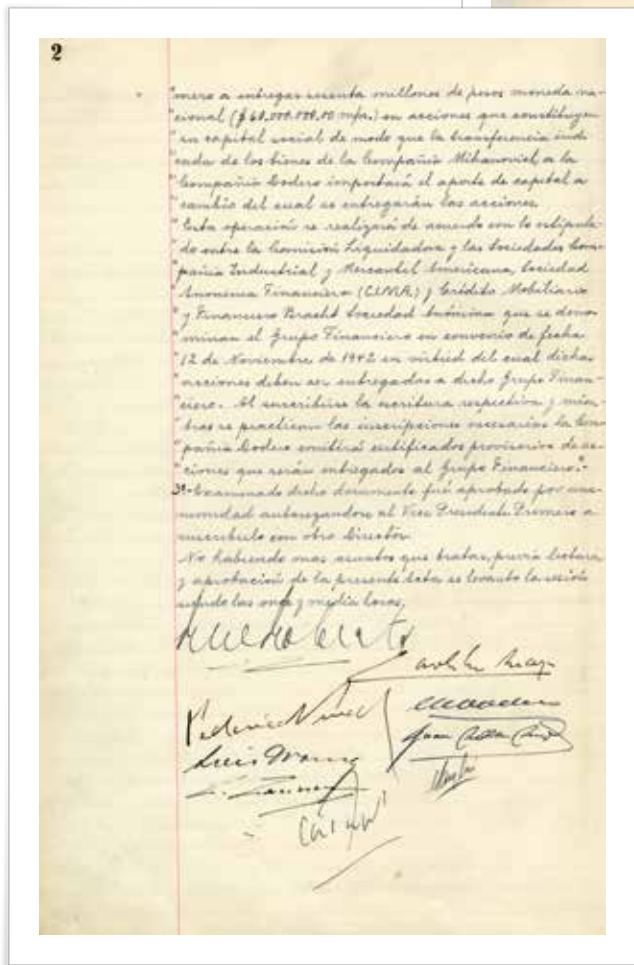 2
"mero a entregar sesenta millones de pesos moneda na-
"cional ($ 60.000.000,00 m/n.) en acciones que constituyen
"su capital social de modo que la transferencia indi
"cada de los bienes de la Compañia Mihanovich a la
"Compañia Dodero importará el aporte de capital a
"cambio del cual se entregarán las acciones.
"Esta operación se realizará de acuerdo con lo estipula-
"do entre la Comisión Liquidadora y las Sociedades Com-
"pañia Industrial y Mercantil Americana, Sociedad
"Anonima Financiera (C.I.M.A.) y Crédito Mobiliario
"y Financiero Bracht Sociedad Anónima que se deno-
"minan el Grupo Financiero en convenio de fecha
"12 de Noviembre de 1942 en virtud del cual dichas
"acciones deben ser entregadas a dicho Grupo Finan-
"ciero. Al suscribirse la escritura respectiva y mien-
"tras se practican las inscripciones necesarias la Com-
"pañia Dodero emitirá certificados provisorios de ac-
"ciones que serán entregados al Grupo Financiero."-
3º- Examinado dicho documento fué aprobado por una-
nimidad autorizandose al Vice Presidente Primero a
suscribirlo con otro Director.
No habiendo mas asuntos que tratar, previa lectura
y aprobación de la presente Acta se levanto la sesión
siendo las once y media horas.
Luis